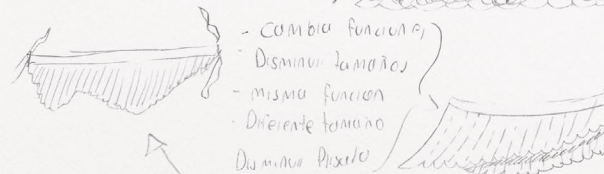 - Cambia funciones
Disminuir tamaños
- misma funcion
- Diferente tamaño
Disminuir Plisado